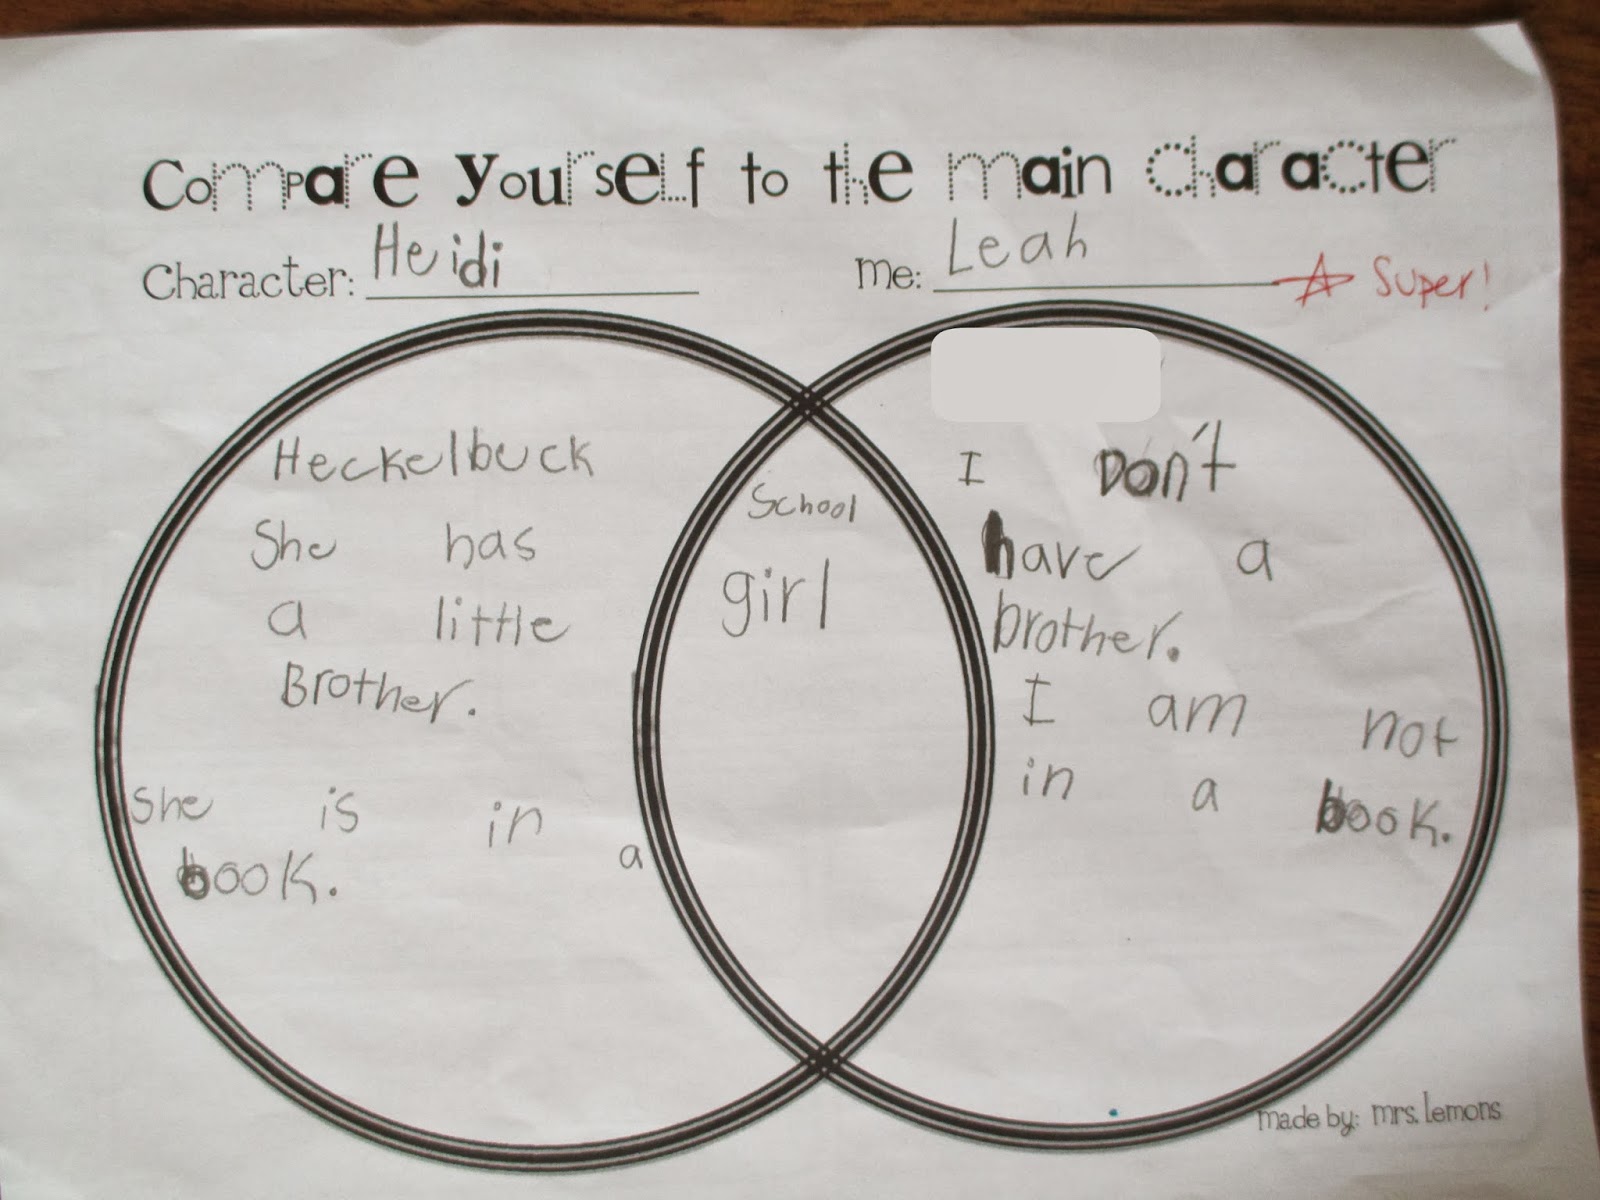 Compare yourself to the main character
Character: Heidi
me: Leah
Super!
Heckelbuck
She has
a little
Brother.
She is in a
book.
School
girl
I Don't
have a
brother.
I am not
in a book.
made by: mrs. lemons